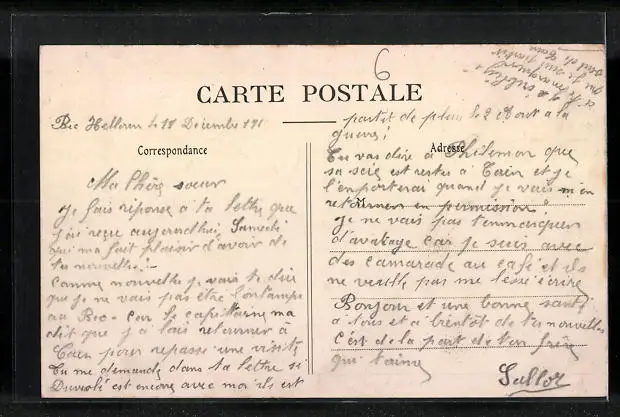 6
CARTE POSTALE
Bec Hellouin le 18 Décembre 191
Correspondance
Ma Chère soeur
Je fais réponse à ta lettre que
j'ai reçu aujourdhui, Samedi
qui ma fait plaisir d'avoir de
tes nouvelle !
Comme nouvelle je vais te dire
que je ne vais pas être longtemps
au Bec - car le capitaine ma
dit que j'alais retourner à
Caen pour repasse une visite
Tu me demande dans ta lettre si
est encore avec moi ils est
partit de plus le 2 Aout a la
guerre !
Adresse
Tu vas dire à Philemon que
sa scie est restes à Caen et je
l'enporterai quand je vais m'en
retourner en permission !
Je ne vais pas t'enmarquer
d'avatage car je suis avec
des camarade au café et ils
ne veulle pas me lèsse écrire
Bonjour et une bonne santé
à tous et à bientôt de tes nouvelles
c'est de la part de ton frère
qui t'aime